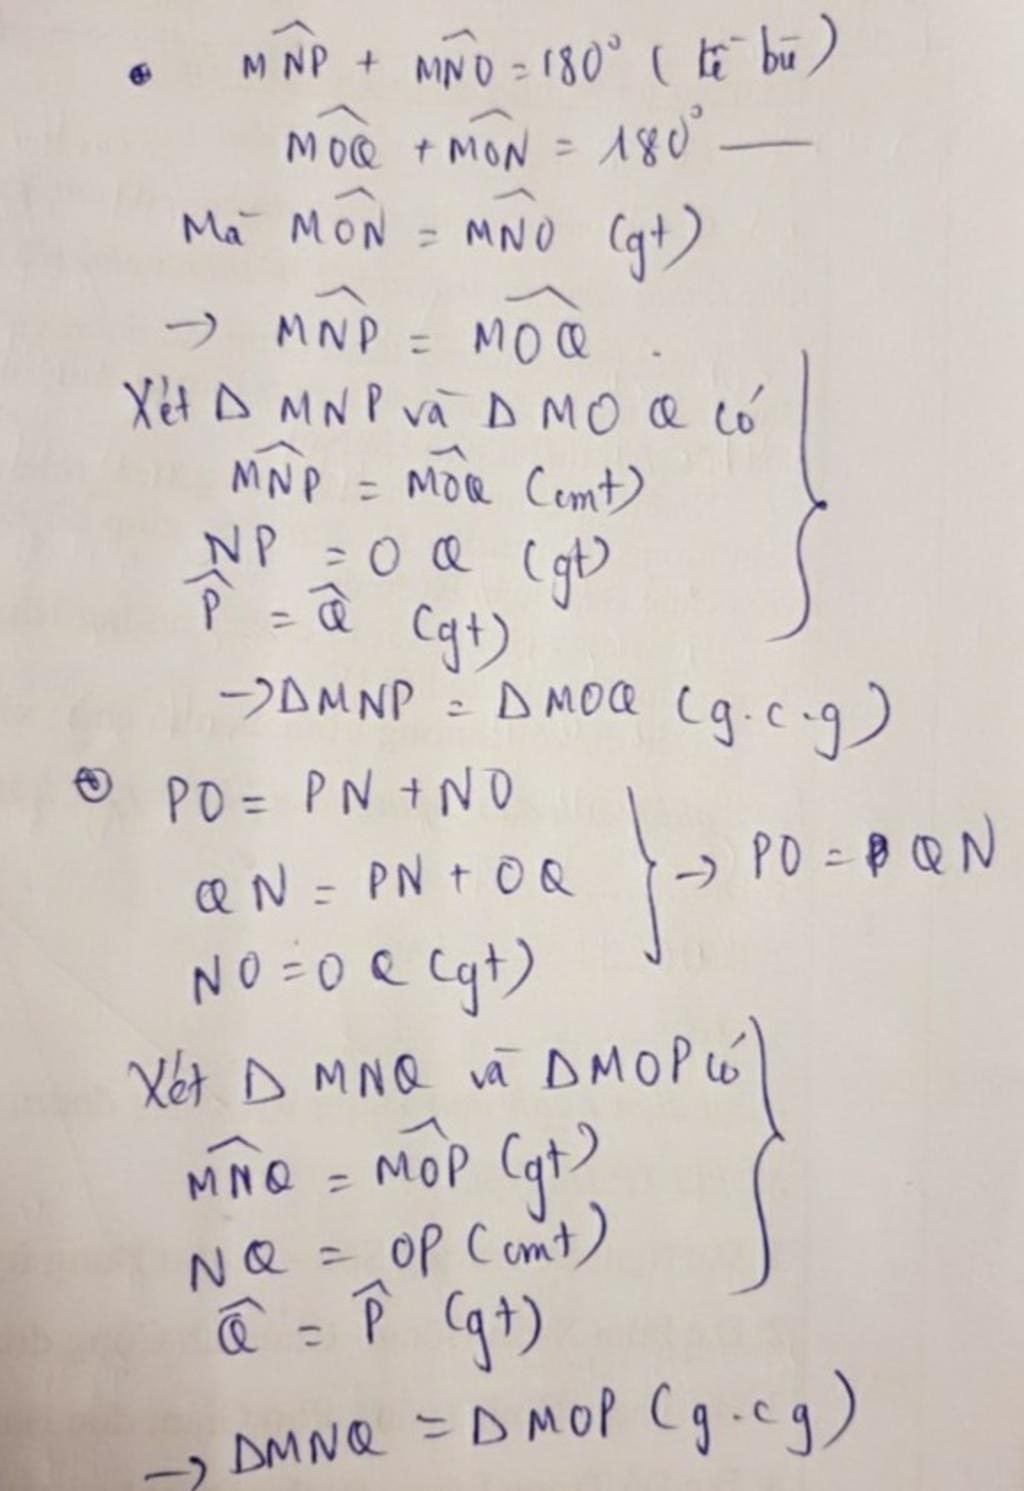 • \widehat{MNP} + \widehat{MNO} = 180° ( kề bù )
\widehat{MOQ} + \widehat{MON} = 180° —
Mà \widehat{MON} = \widehat{MNO} (gt)
→ \widehat{MNP} = \widehat{MOQ} .
Xét Δ MNP và Δ MOQ có
\widehat{MNP} = \widehat{MOQ} (cmt)
NP = OQ (gt)
\widehat{P} = \widehat{Q} (gt)
→ ΔMNP = ΔMOQ (g.c.g)
• PO = PN + NO
QN = PN + OQ
NO = OQ (gt)
→ PO = QN
Xét Δ MNQ và ΔMOP có
\widehat{MNQ} = \widehat{MOP} (gt)
NQ = OP (cmt)
\widehat{Q} = \widehat{P} (gt)
→ ΔMNQ = ΔMOP (g.c g)